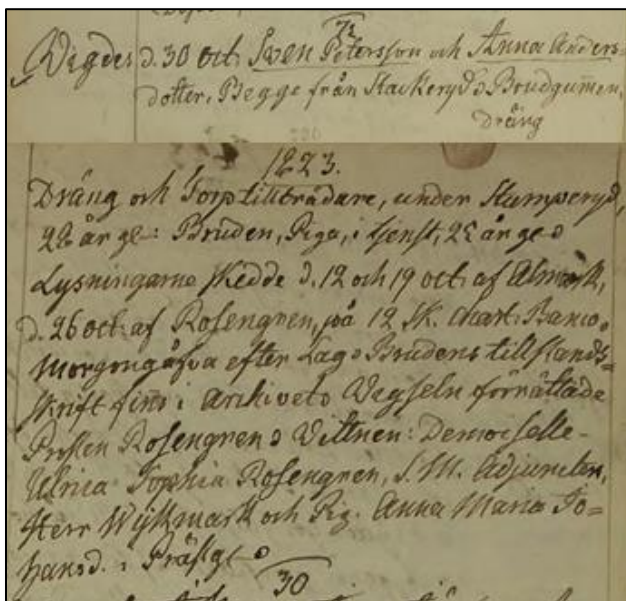 Vigdes d. 30 oct. Swen Petersson och Anna Anders-
dotter, Begge från Stackeryd. Brudgum̄en,
Dräng
1823.
Dräng och Torptillträdare, under Slumperyd,
22 år gl: Bruden, Piga, i tjenst, 25 år gl.
Lysningarne skedde d. 12 och 19 oct. af Almark,
d. 26 oct. af Rosengren, på 12 Sk. Chart. Banco.
Morgongåfva efter Lag. Brudens tillstånds-
skrift fins i Archivet. Vigseln förrättade
Prosten Rosengren. Vittnen: Demoiselle
Ulrica Sophia Rosengren, S. M. Adjuncten,
Herr Wijkmark och Pig. Anna Maria Jo-
hansd. i Prästg.
30